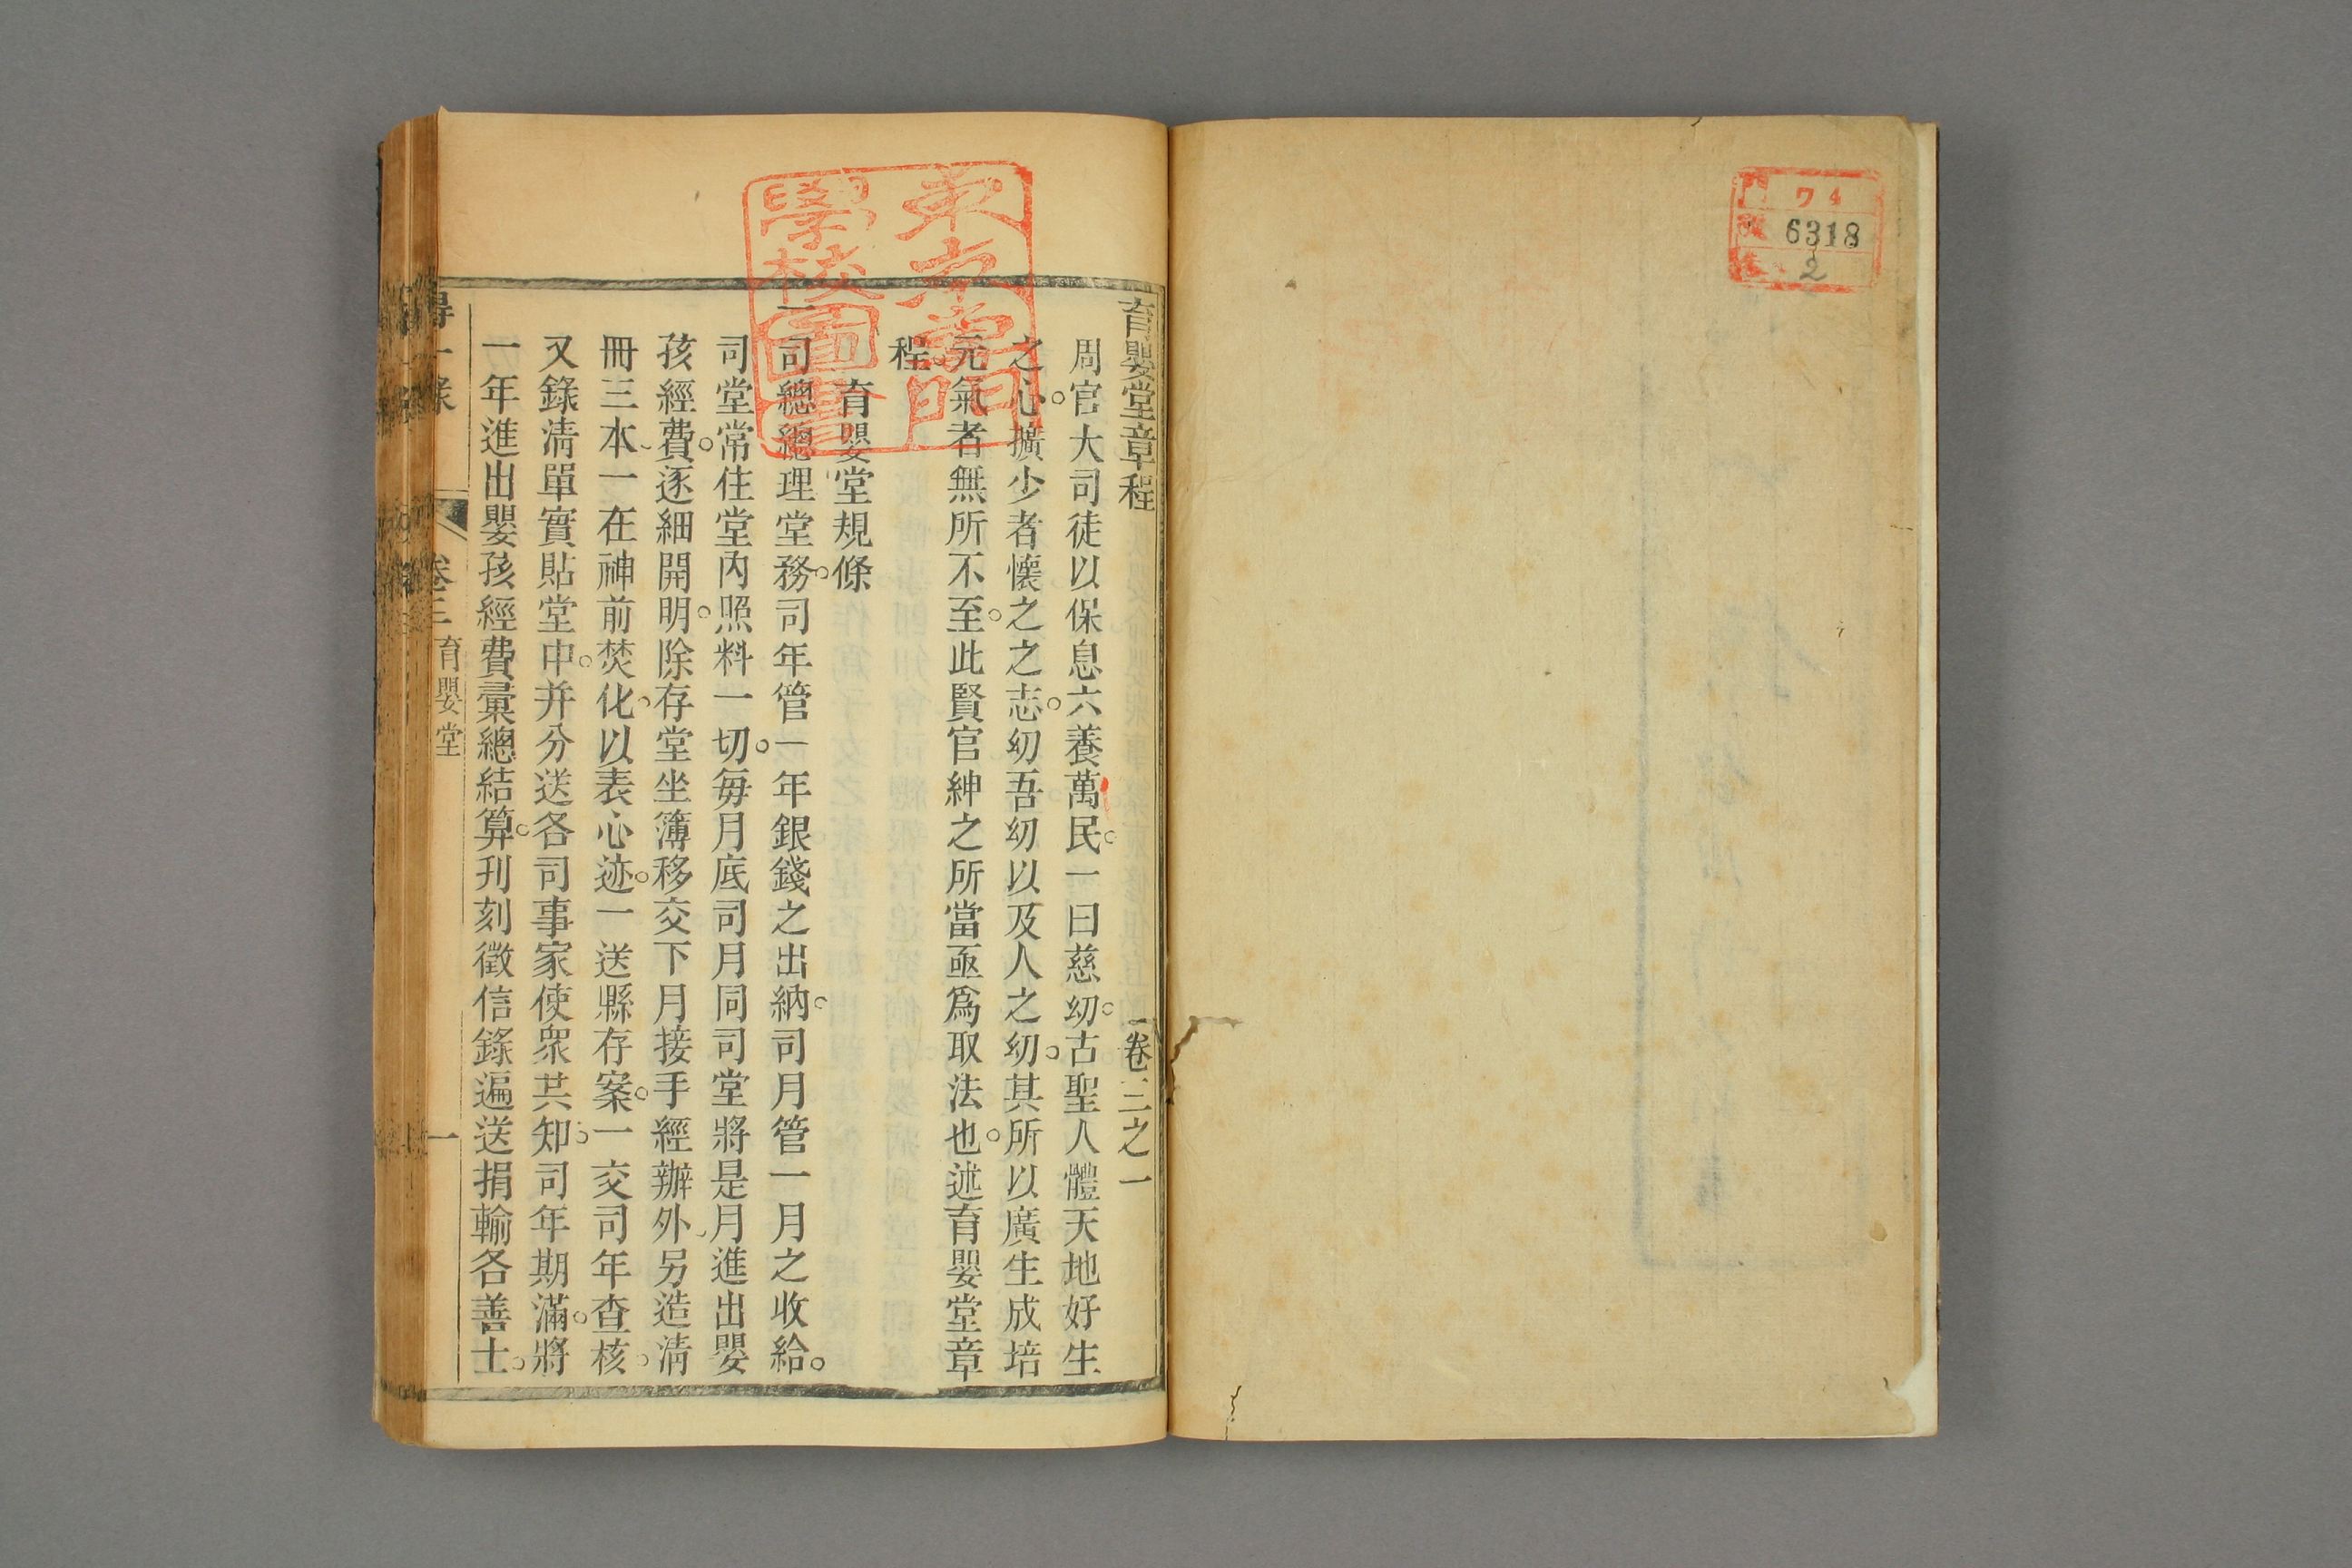 ワ4
6318
2
東京專門
學校圖書
育嬰堂章程 卷三之一
周官大司徒以保息六養萬民。一曰慈幼。古聖人體天地好生
之心。擴少者懷之之志。幼吾幼以及人之幼。其所以廣生成培
元氣者無所不至。此賢官紳之所當亟爲取法也。述育嬰堂章
程。
育嬰堂規條
一司總總理堂務。司年管一年銀錢之出納。司月管一月之收給。
司堂常住堂内照料一切。每月底司月同司堂將是月進出嬰
孩經費。逐細開明。除存堂坐簿移交下月接手經辦外、另造清
冊三本、一在神前焚化、以表心迹。一送縣存案。一交司年查核。
又錄清單實貼堂中。并分送各司事家使衆共知。司年期滿。將
一年進出嬰孩經費彙總結算。刊刻徵信錄遍送捐輸各善士。
得一录 卷三 育嬰堂 一